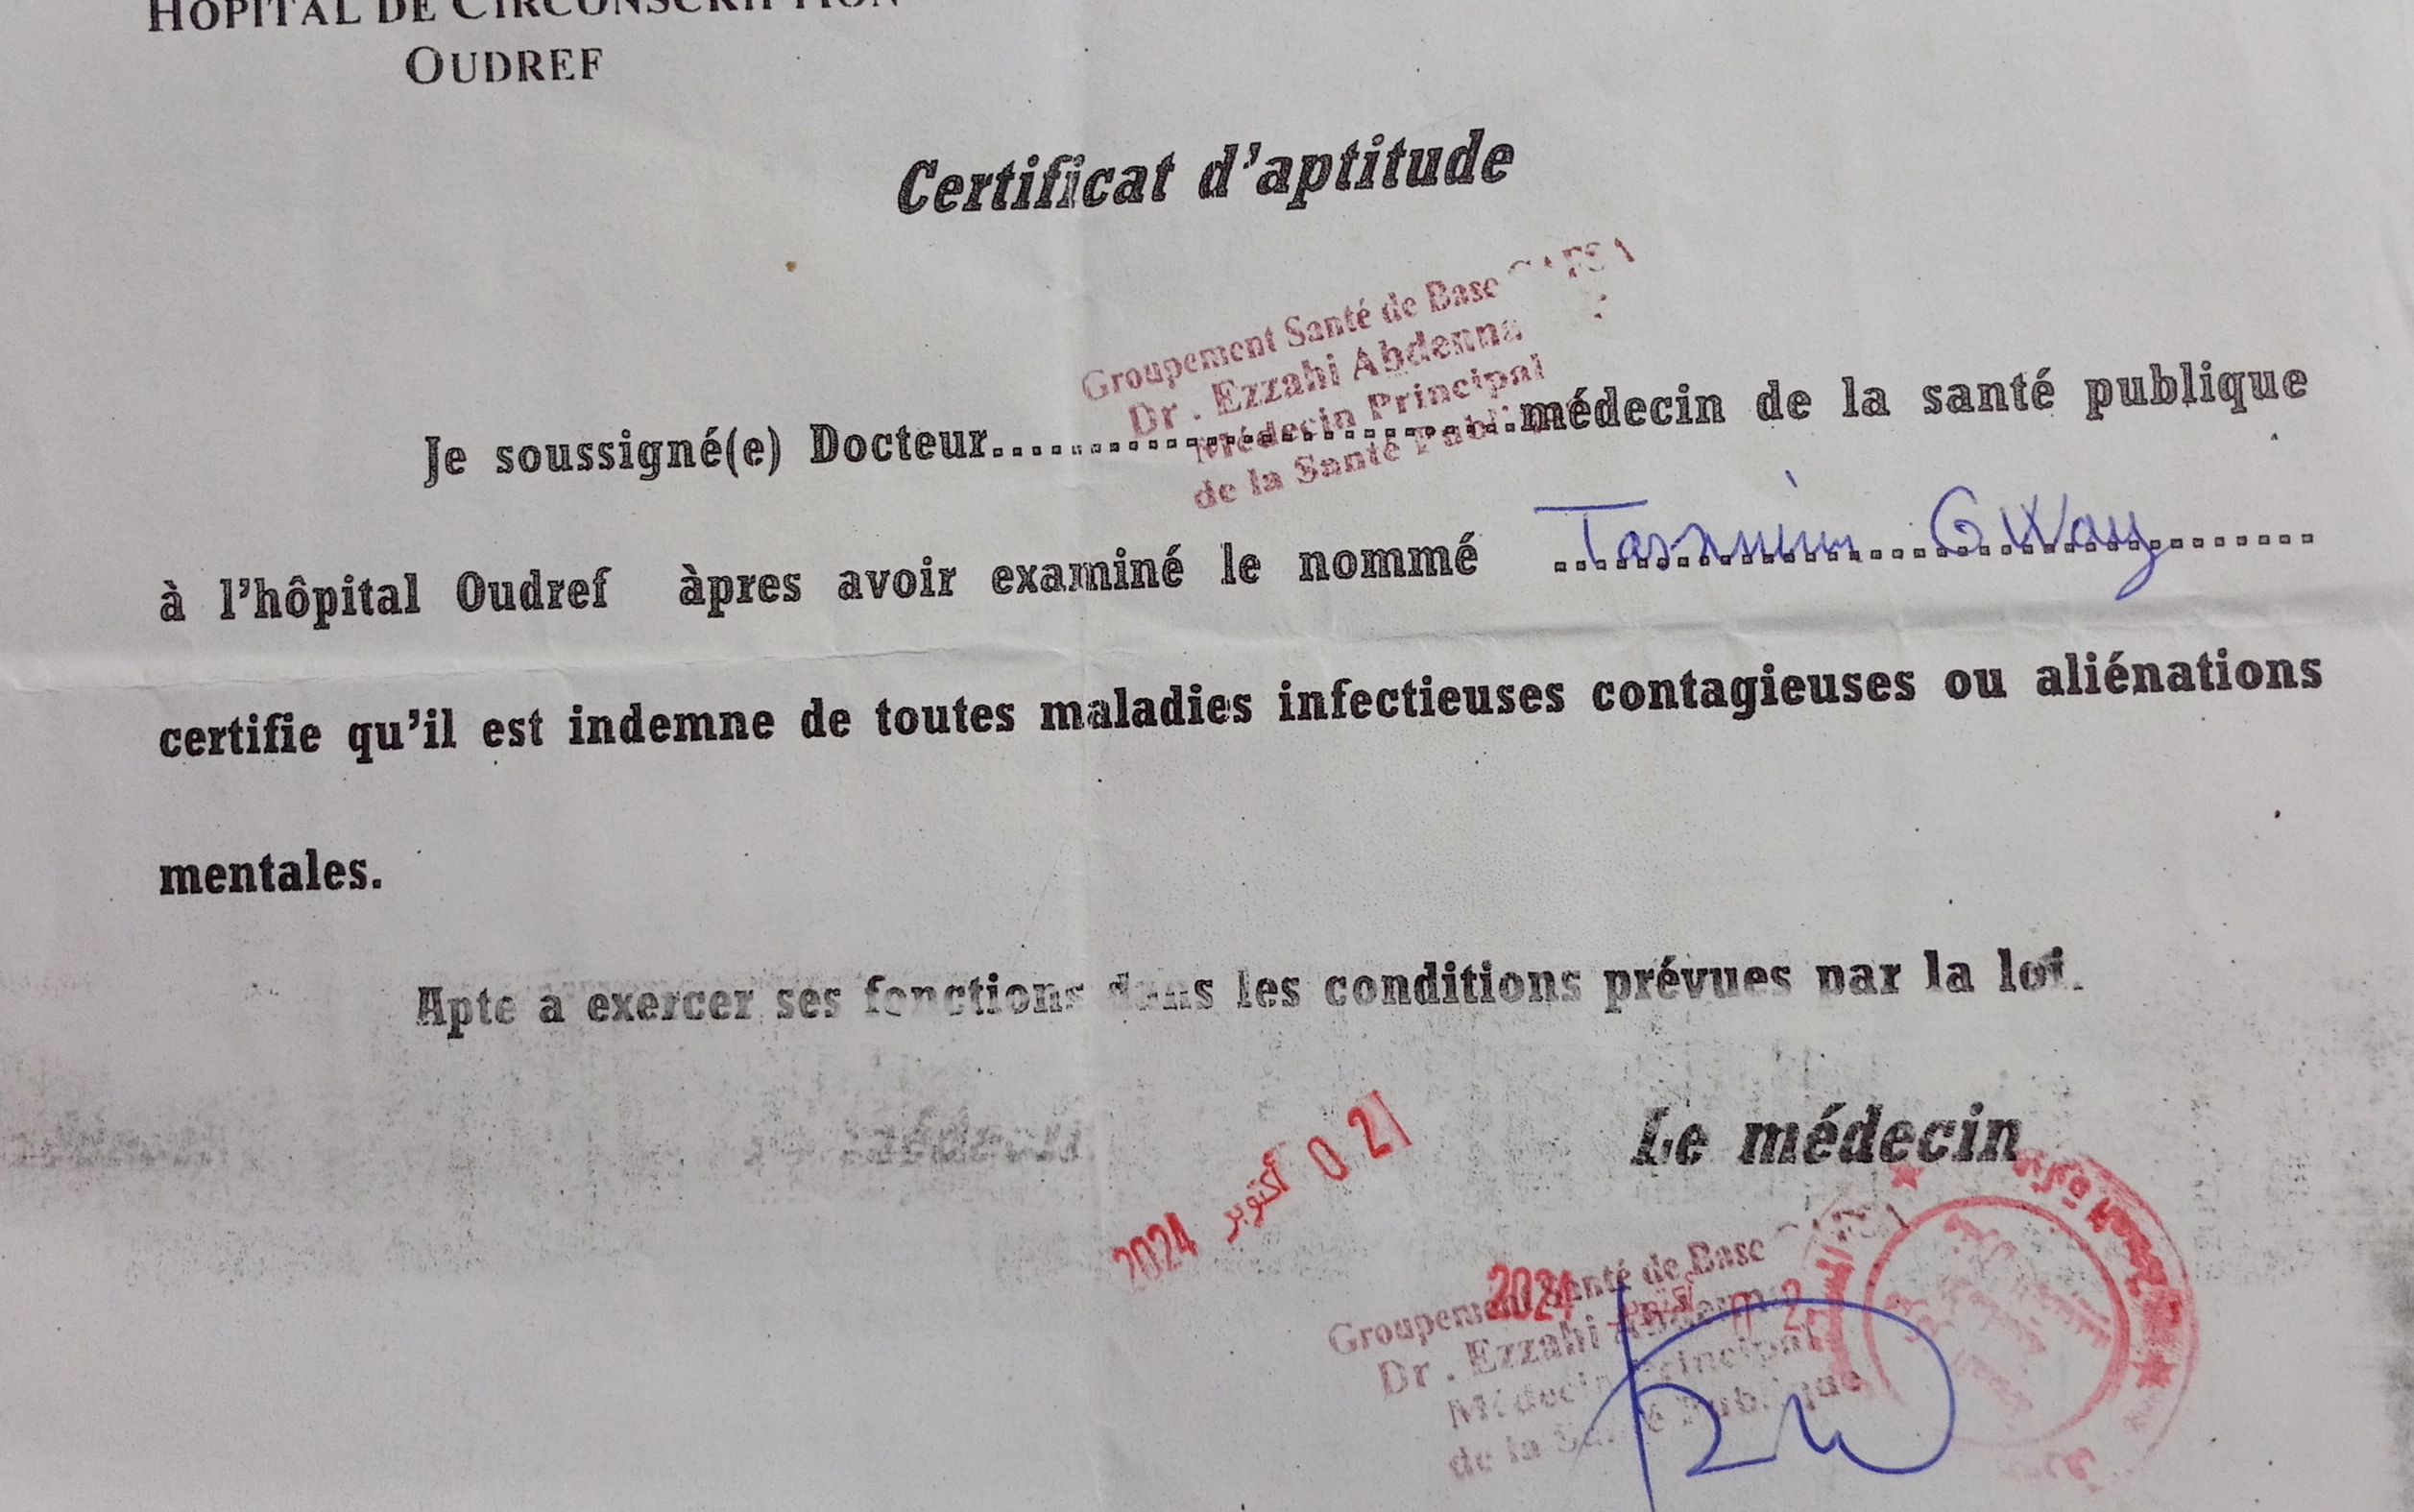 HÔPITAL DE CIRCONSCRIPTION
OUDREF
Certificat d'aptitude
Groupement Santé de Base
Dr . Ezzahi
Médecin Principal
de la Santé
Je soussigné(e) Docteur..............................médecin de la santé publique
à l'hôpital Oudref àpres avoir examiné le nommé Tasnim
certifie qu'il est indemne de toutes maladies infectieuses contagieuses ou aliénations
mentales.
Apte a exercer ses fonctions dans les conditions prévues par la loi.
Le médecin
2024 أكتوبر 0 2
Groupement Santé de Base
2024
Dr . Ezzahi
Médecin Principal
de la Santé Publique